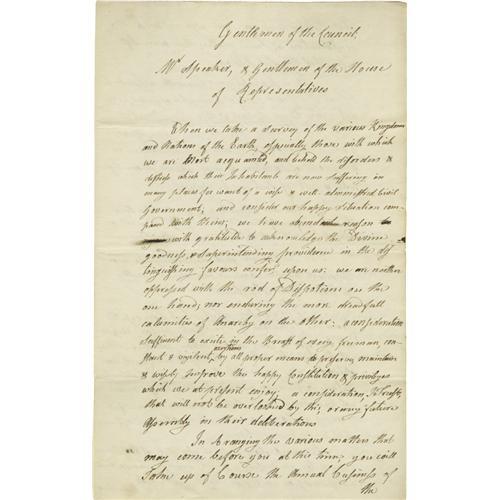 Gentlemen of the Council.
Mr Speaker, & Gentlemen of the House
of Representatives
When we take a survey of the various Kingdoms
and Nations of the Earth, especially those with which
we are most acquainted, and behold the disorders &
distress which their Inhabitants are now suffering in
many places for want of a wise & well administred Civil
Government; and consider our happy situation com
pared with theirs; we have abundant reason to
with gratitude to acknowledge the Divine
goodness, & superintending providence in the dis
tinguishing favours confer'd upon us: we are neither
oppressed with the rod of Despotism on the
one hand; nor enduring the more dreadfull
calamities of Anarchy on the other: a consideration
sufficient to excite in the Breast of every freeman, con
stant & vigilent exertions by all proper means to preserve, maintain
& wisely improve the happy Constitution & priviliges
which we at present enjoy; a consideration, I trust,
that will not be overlooked by this, or any future
Assembly in their deliberations
In aranging the various matters that
may come before you at this time; you will
Take up of Course the Annual Business of
the